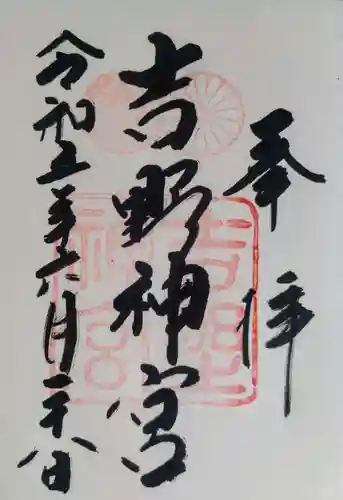 奉拝
吉野神宮
令和五年六月二十八日
吉野
神宮